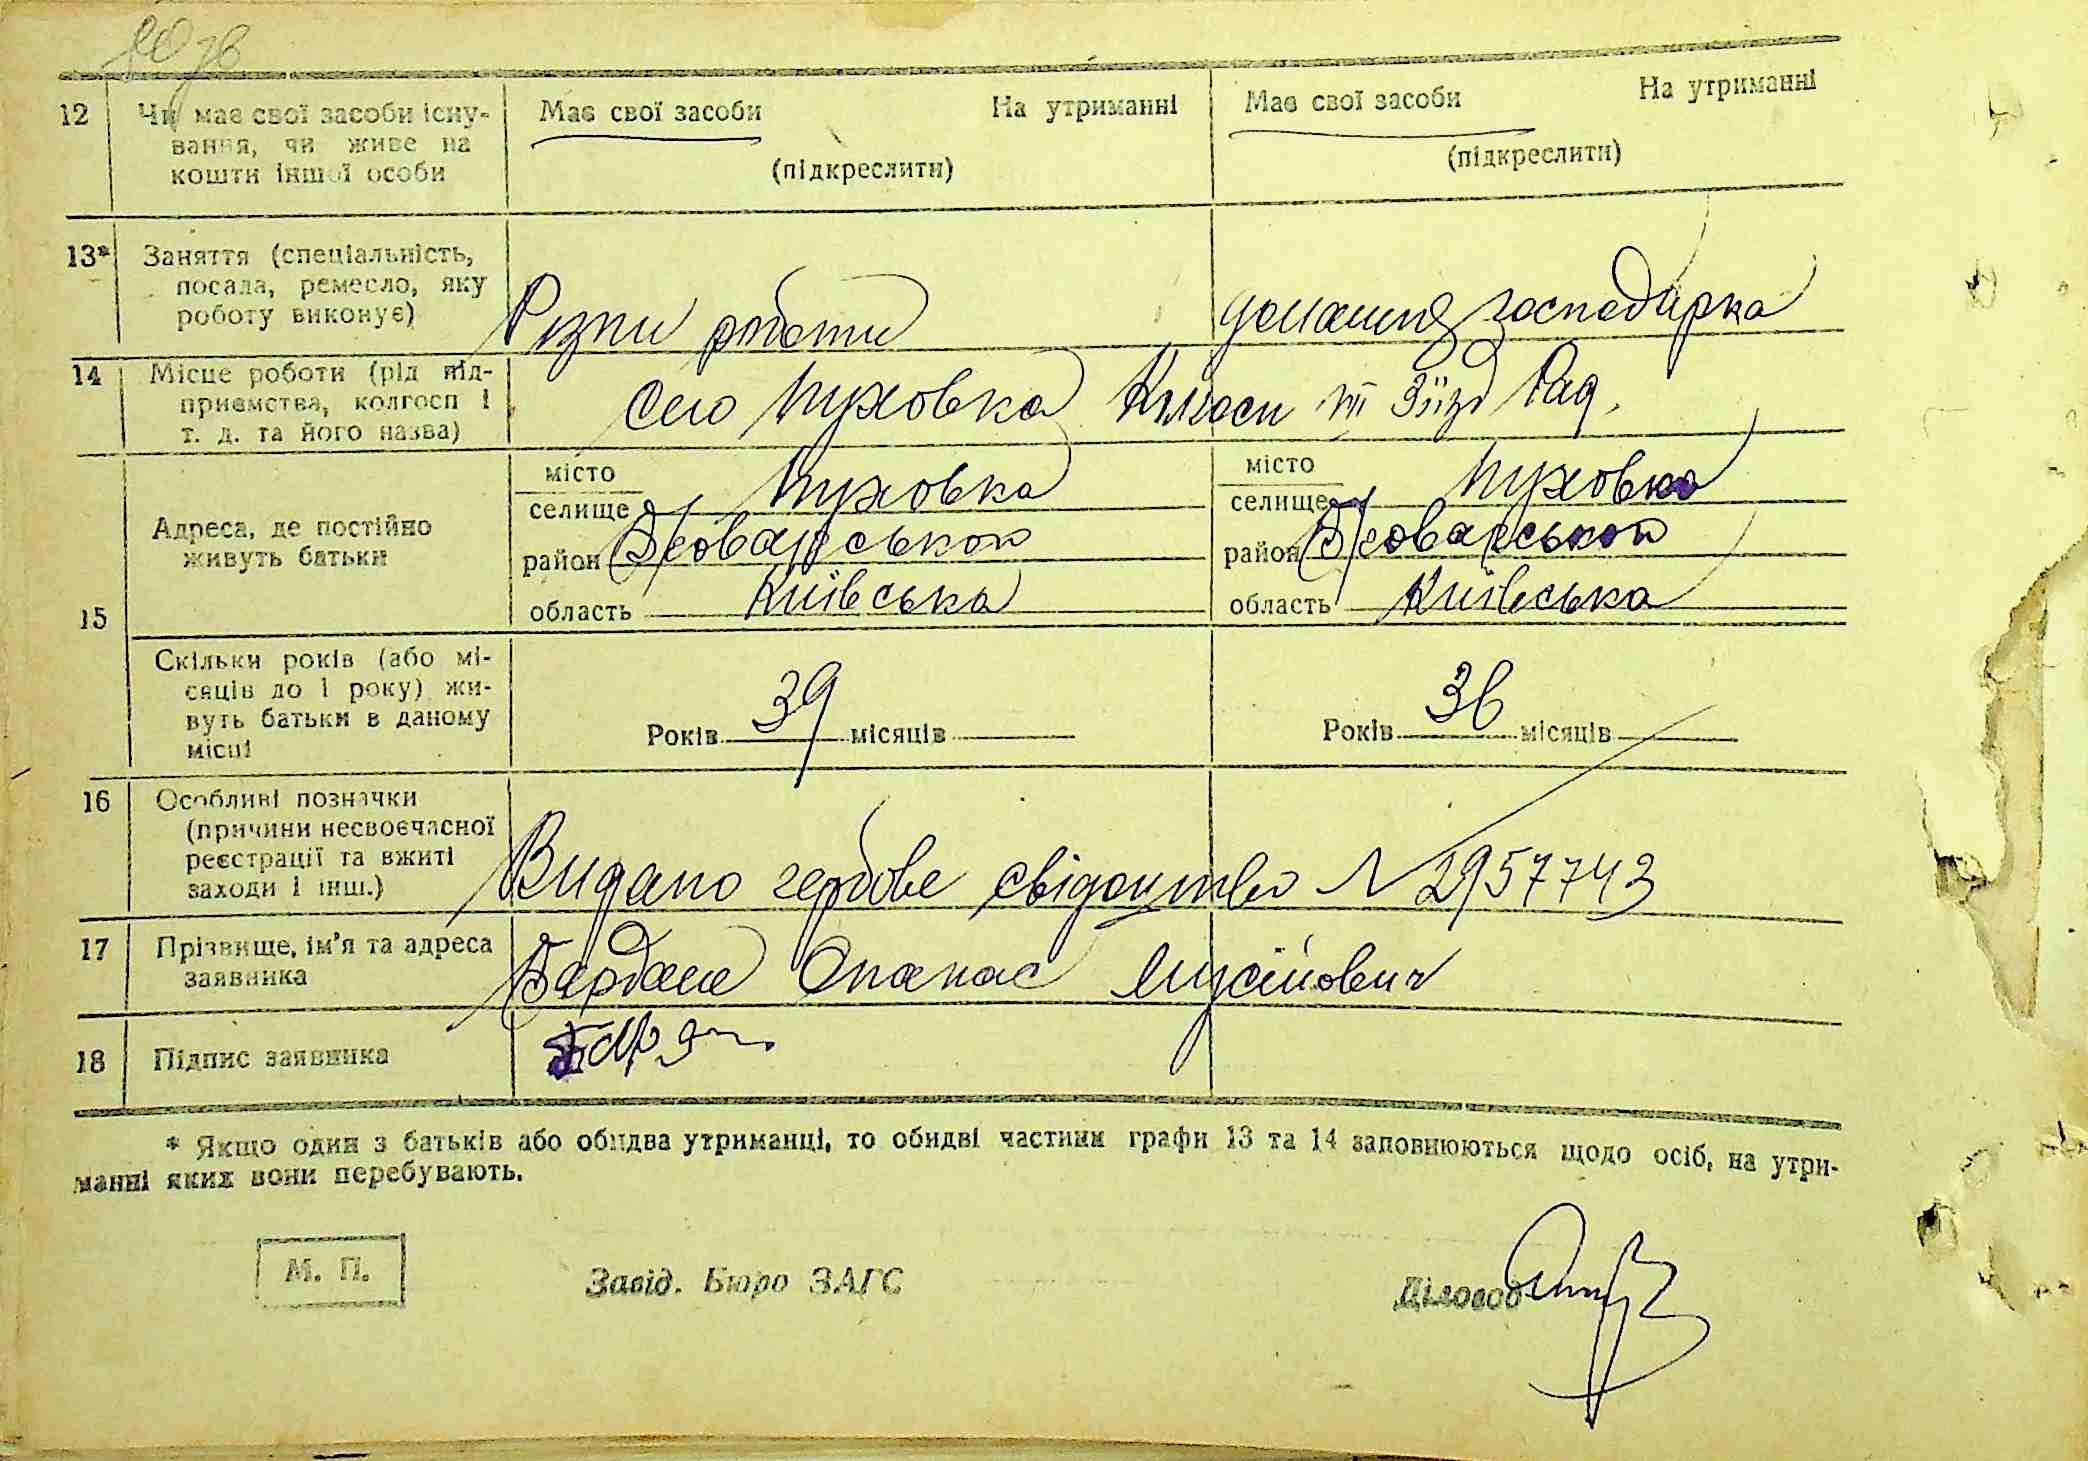 12 Чи має свої засоби існу- Має свої засоби На утриманні Має свої засоби На утриманні
вання, чи живе на
кошти іншої особи (підкреслити) (підкреслити)
13* Заняття (спеціальність,
посада, ремесло, яку
роботу виконує) Різни роботи домашня господарка
14 Місце роботи (рід під-
приємства, колгосп і село Пуховка Колгосп VIII Зїізд Рад.
т. д. та його назва)
15 Адреса, де постійно
живуть батьки
місто
селище Пуховка
район Броварського
область Київська
місто
селище Пуховка
район Броварського
область Київська
Скільки років (або мі-
сяців до 1 року) жи-
вуть батьки в даному
місці
Років 39 місяців
Років 36 місяців
16 Особливі позначки
(причини несвоєчасної
реєстрації та вжиті
заходи і інш.) Видано гербове свідоцтво N 2957743
17 Прізвище, ім'я та адреса
заявника Бардаш Опанас Мусійович
18 Підпис заявника
* Якщо один з батьків або обидва утриманці, то обидві частини графи 13 та 14 заповнюються щодо осіб, на утри-
манні яких вони перебувають.
М. П. Завід. Бюро ЗАГС Діловод